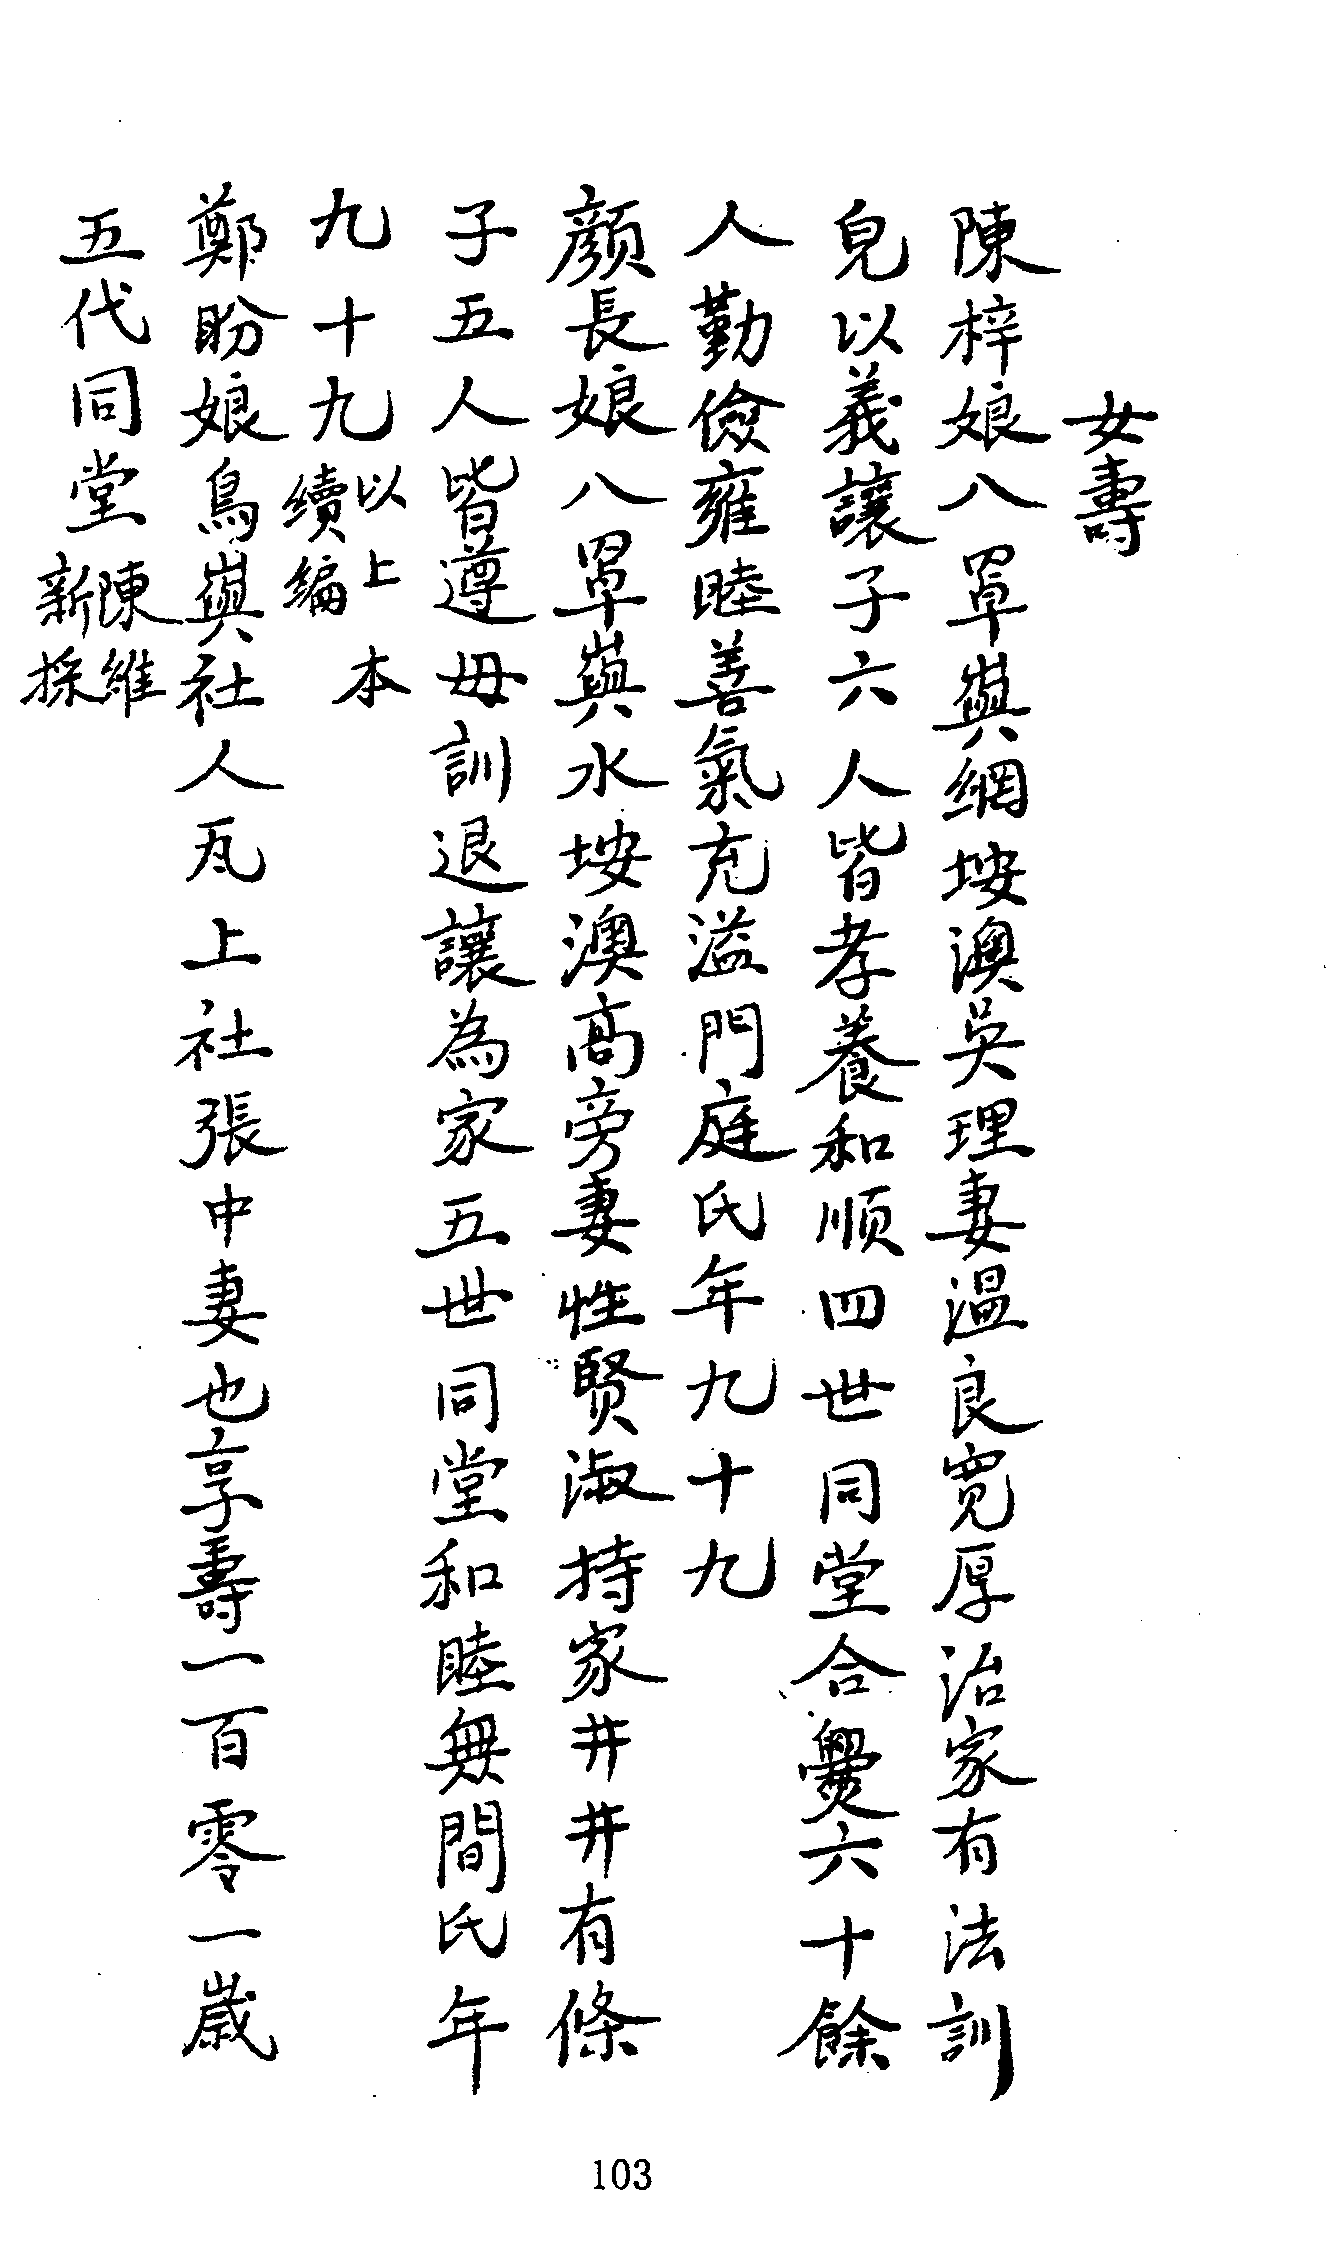 女壽
陳梓娘八罩嶼網垵澳吳理妻溫良寬厚治家有法訓
兒以義讓子六人皆孝養和順四世同堂合爨六十餘
人勤儉雍睦善氣充溢門庭氏年九十九
顏長娘八罩嶼水垵澳高旁妻性賢淑持家井井有條
子五人皆遵母訓退讓為家五世同堂和睦無間氏年
九十九以上本續編
鄭盼娘鳥嶼社人瓦上社張中妻也享壽一百零一歲
五代同堂陳維新採
103